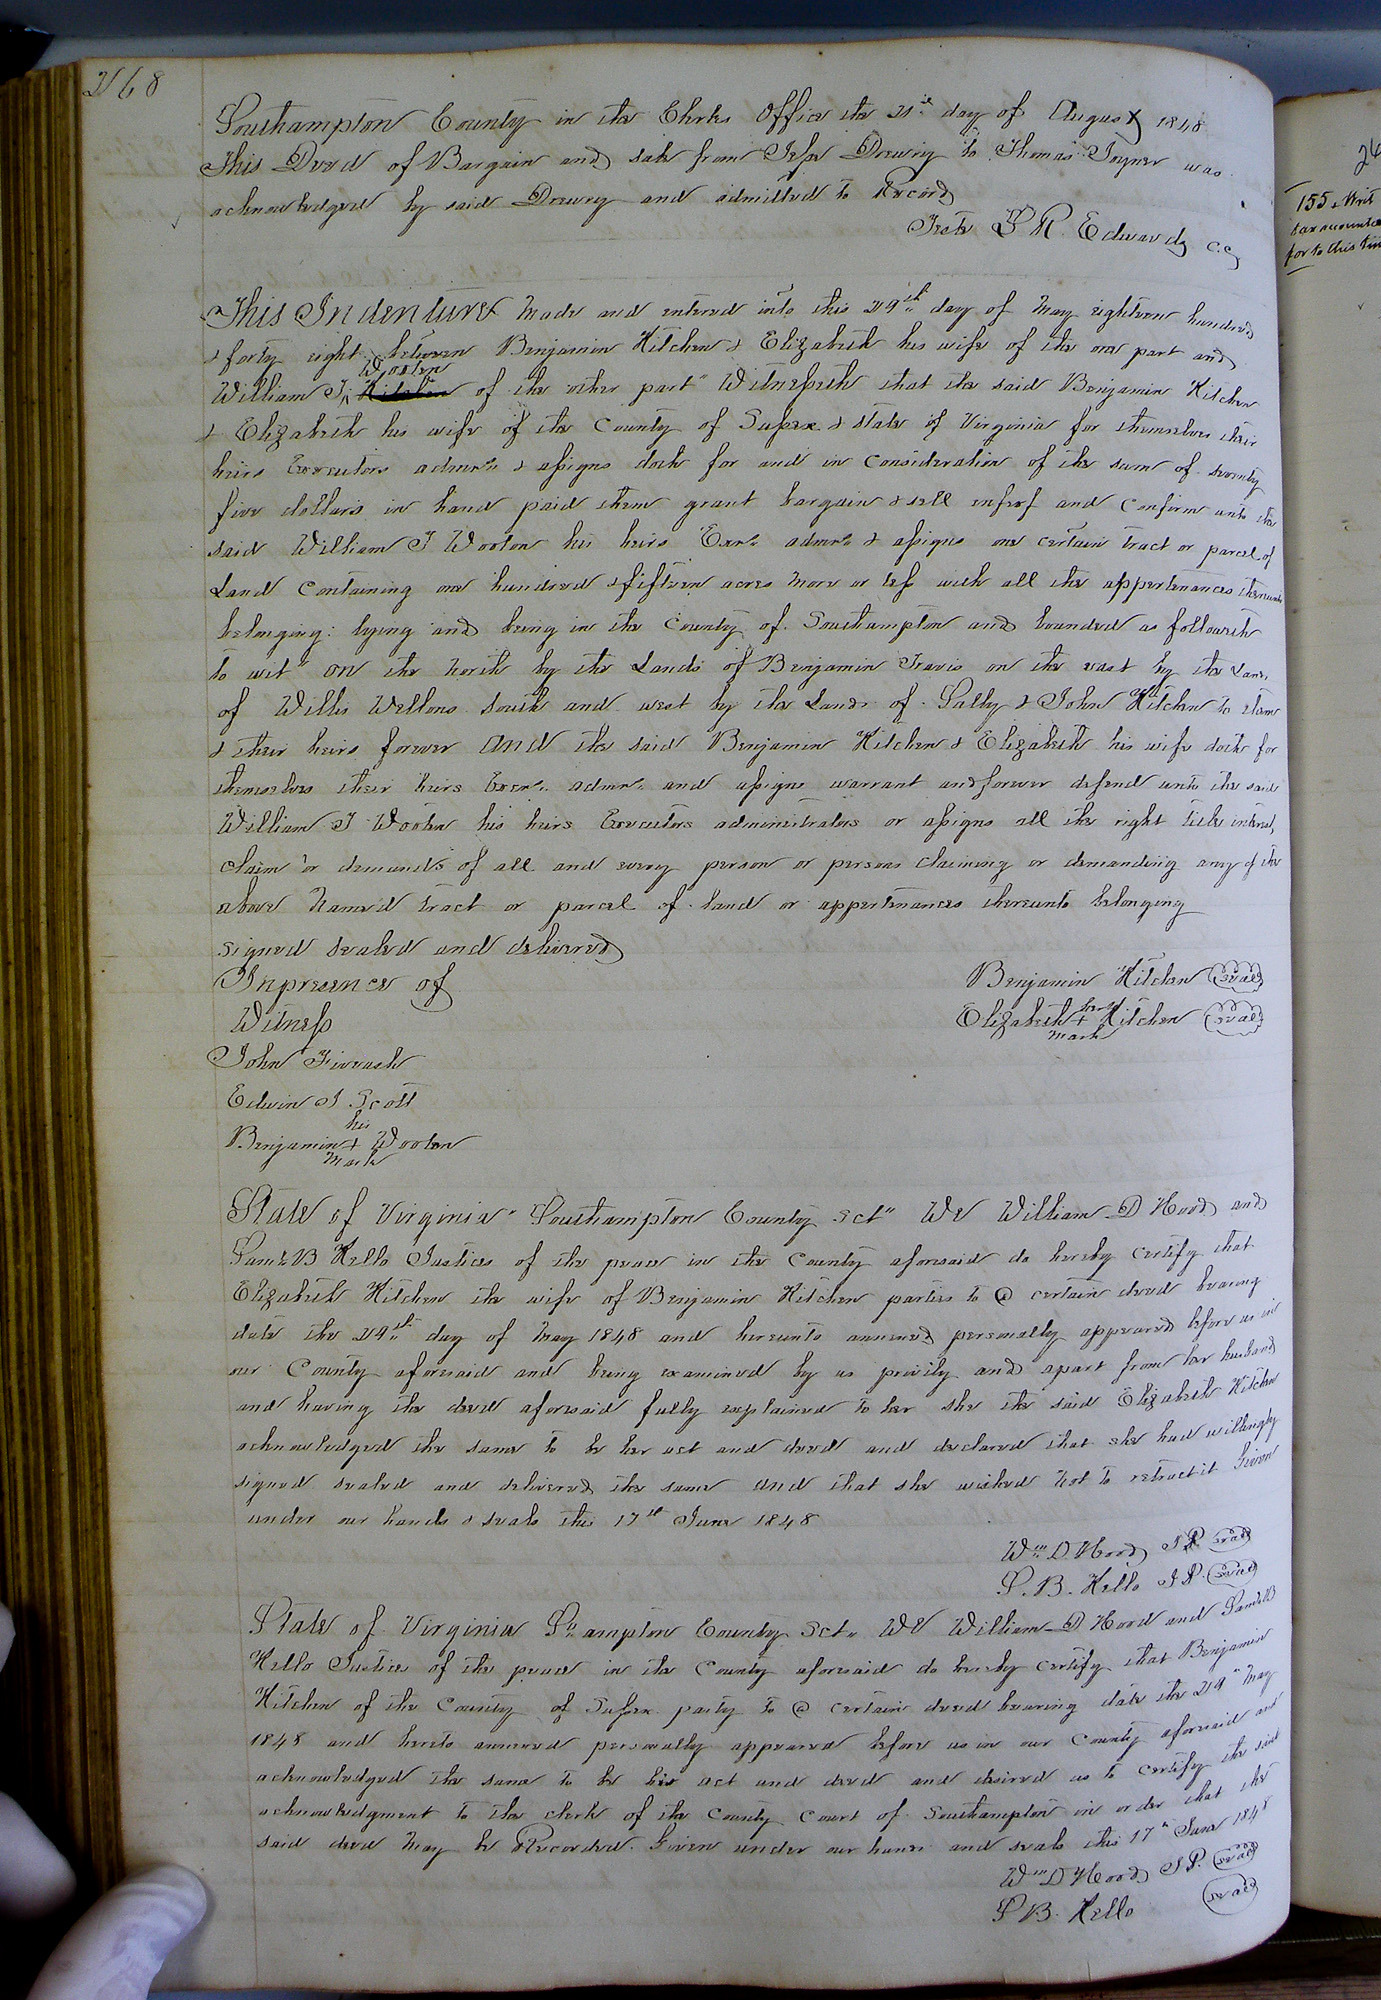 268
Southampton County in the Clerks Office the 21st day of August 1848
This Deed of Bargain and sale from Jesse Drewry to Thomas Joyner was
acknowledged by said Drewry and admitted to Record
Teste L R Edwards C.C.
This Indenture Made and entered into this 29th day of May eighteen hundred
& forty eight between Benjamin Kitchen & Elizabeth his wife of the one part and
Wooten
William J. Kitchen of the other part" Witnesseth that the said Benjamin Kitchen
& Elizabeth his wife of the County of Sussex & State of Virginia for themselves their
heirs Executors admrs & assigns doth for and in Consideration of the sum of seventy
five dollars in hand paid them grant bargain & sell enfeof and Confirm unto the
said William J Wooten his heirs Exrs admrs & assigns one certain tract or parcel of
Land Containing one hundred & fifteen acres More or less with all the appertenances thereunto
belonging: lying and being in the County of Southampton and bounded as followeth
to wit" on the North by the Lands of Benjamin Travis on the east by the Lands
of Willis Wellons South and west by the Lands of Sally & John Kitchen to them
& their heirs forever And the said Benjamin Kitchen & Elizabeth his wife doth for
themselves their heirs Exers. admrs. and assigns warrant and forever defend unto the said
William J Wooten his heirs Executors administrators or assigns all the right title interest,
claim or demands of all and every person or persons claiming or demanding any of the
above Named tract or parcel of land or appertenances thereunto belonging
signed sealed and delivered
In presence of
Benjamin Kitchen (seal)
Witness
her
Elizabeth + Kitchen (seal)
mark
John
Edwin J. Scott
his
Benjamin + Wooten
Mark
State of Virginia" Southampton County Sct" We William D Hood and
Saml B Kello Justices of the peace in the County aforesaid do hereby certify that
Elizabeth Kitchen the wife of Benjamin Kitchen parties to a certain deed bearing
date the 29th day of May 1848 and hereunto annexed personally appeared before us in
our County aforesaid and being examined by us privily and apart from her husband
and having the deed aforesaid fully explained to her she the said Elizabeth Kitchen
acknowledged the same to be her act and deed and declared that she had willingly
signed sealed and delivered the same and that she wished Not to retract it Given
under our hands & seals this 17th June 1848
Wm D. Hood J.P. (seal)
S. B. Kello J P. (seal)
State of Virginia So ampton County Sct" We William D Hood and Saml B
Kello Justices of the peace in the County aforesaid do hereby certify that Benjamin
Kitchen of the County of Sussex party to a certain deed bearing date the 29th May
1848 and hereto annexed personally appeared before us in our County aforesaid and
acknowledged the same to be his act and deed and desired us to certify the said
acknowledgment to the clerk of the County Court of Southampton in order that the
said deed May be Recorded. Given under our hands and seals this 17th June 1848
Wm D Hood J P. (seal)
S B. Kello (seal)
26
155
tax
for to this